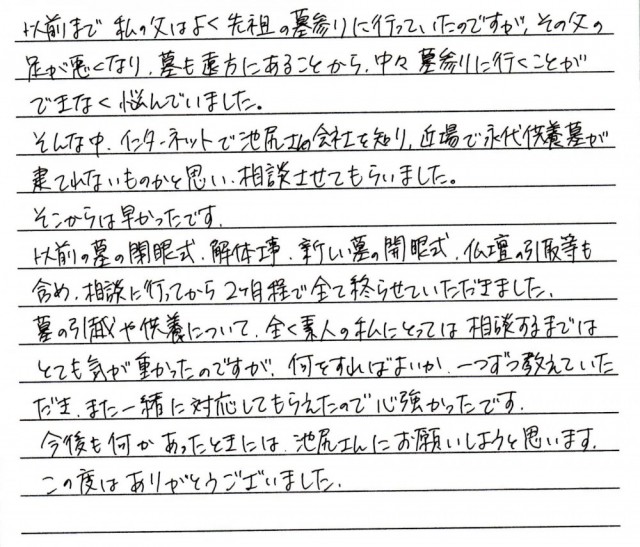 以前まで私の父はよく先祖の墓参りに行っていたのですが、その父の
足が悪くなり、墓も遠方にあることから、中々墓参りに行くことが
できなく悩んでいました。
そんな中、インターネットで池尻さんの会社を知り、近場で永代供養墓が
建てれないものかと思い、相談させてもらいました。
そこからは早かったです。
以前の墓の閉眼式、解体工事、新しい墓の開眼式、仏壇の引取等も
含め、相談に行ってから2ヶ月程で全て終らせていただきました。
墓の引越や供養について、全く素人の私にとっては相談するまでは
とても気が重かったのですが、何をすればよいか、一つずつ教えていた
だき、また一緒に対応してもらえたので心強かったです。
今後も何かあったときには、池尻さんにお願いしようと思います。
この度はありがとうございました。